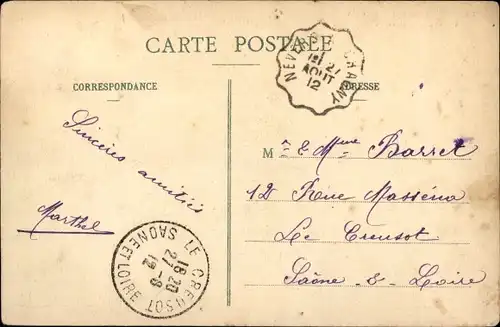 CARTE POSTALE
NEVERS CHAGNY
27
AOUT
12
CORRESPONDANCE
ADRESSE
Sincères amitiés
Marthe
M r & Mme Barret
12 Rue Masséna
Le Creusot
Saône-&-Loire
LE CREUSOT
16 20
27 - 8
12
SAONE ET LOIRE